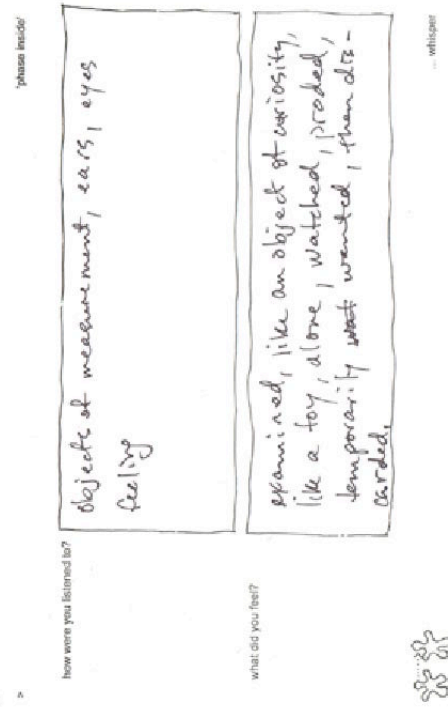 >
'phase inside'
how were you listened to?
objects of measurement, ears, eyes
feeling
what did you feel?
examined, like an object of curiosity,
like a toy, alone, watched, proded,
temporarily wanted, then dis-
carded.
... whisper